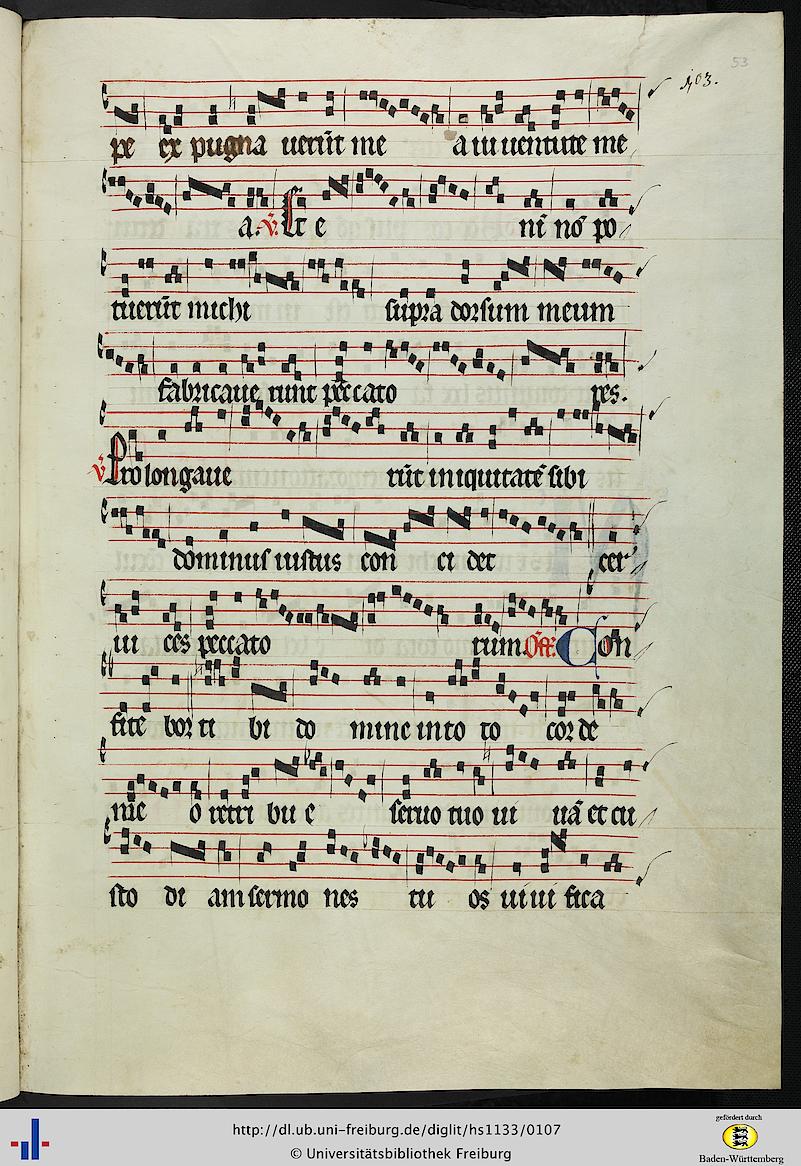 53
103.
pe ex pugna uerūt me a iu uentute me
a. V. Et e nī nō po
tuerūt michi supra dorsum meum
fabricaue runt peccato res.
V. Pro longaue rūt iniquitatē sibi
dominus iustus con ci det cer
ui ces peccato rum. Off. Con
fite bor ti bi do mine in to to cor de
me o retri bu e seruo tuo ui uā et cu
sto di am sermo nes tu os uiui fica
gefördert durch
http://dl.ub.uni-freiburg.de/diglit/hs1133/0107
© Universitätsbibliothek Freiburg
Baden-Württemberg